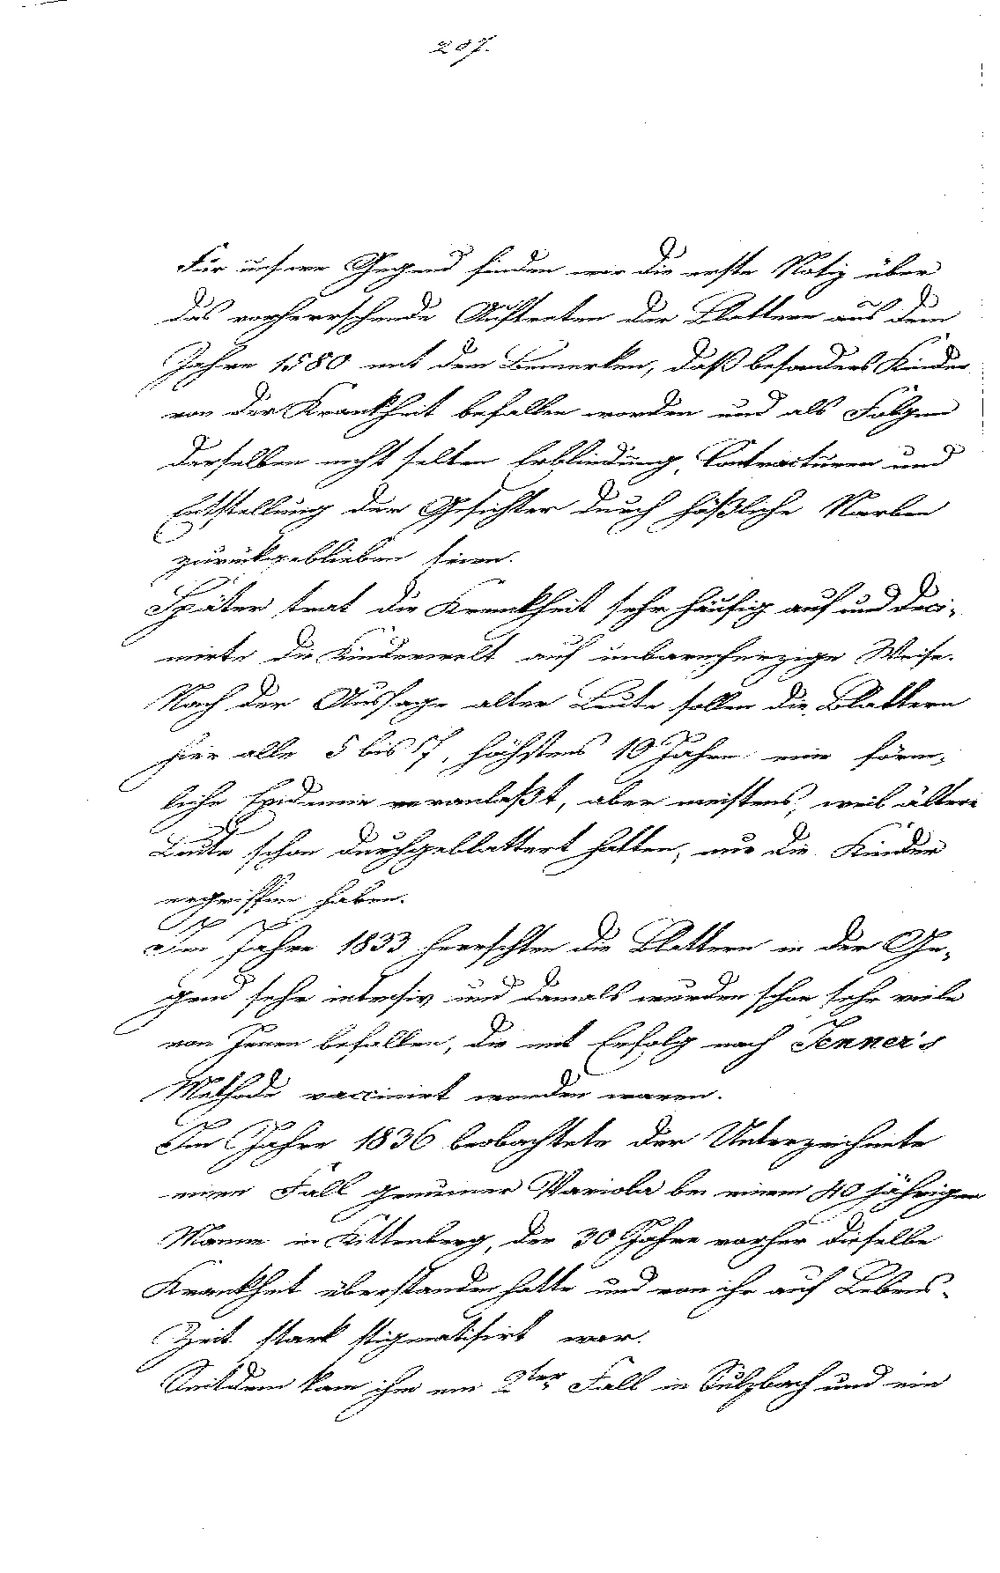 207.
Für unsere Gegend finden wir die erste Notiz über
das vorherrschende Auftreten der Blattern aus dem
Jahre 1580 mit dem Bemerken, daß besonders Kinder
von der Krankheit befallen worden und als Folgen
derselben nicht selten Erblindung, Contracturen und
Entstellung der Gesichter durch häßliche Narben
zurückgeblieben seien.
Später trat die Krankheit sehr häufig auf und deci-
mirte die Kinderwelt auf unbarmherzige Weise.
Nach der Aussage alter Leute sollen die Blattern
hier alle 5 bis 7, höchstens 10 Jahre eine förm-
liche Epidemie veranlaßt, aber meistens, weil ältere
Leute schon durchgeblattert hatten, nur die Kinder
ergriffen haben.
Im Jahre 1833 herrschten die Blattern in der Ge-
gend sehr intensiv und damals wurden schon sehr viele
von Jenen befallen, die mit Erfolg nach Jenner's
Methode vaccinirt worden waren.
Im Jahre 1836 beobachtete der Unterzeichnete
einen Fall genuiner Variola bei einem 40 jährigen
Manne in Kittenberg, der 30 Jahre vorher dieselbe
Krankheit überstanden hatte und von ihr auf Lebens-
Zeit stark stigmatisirt war.
Seitdem kam ihm ein 2ter Fall in Sulzbach und ein